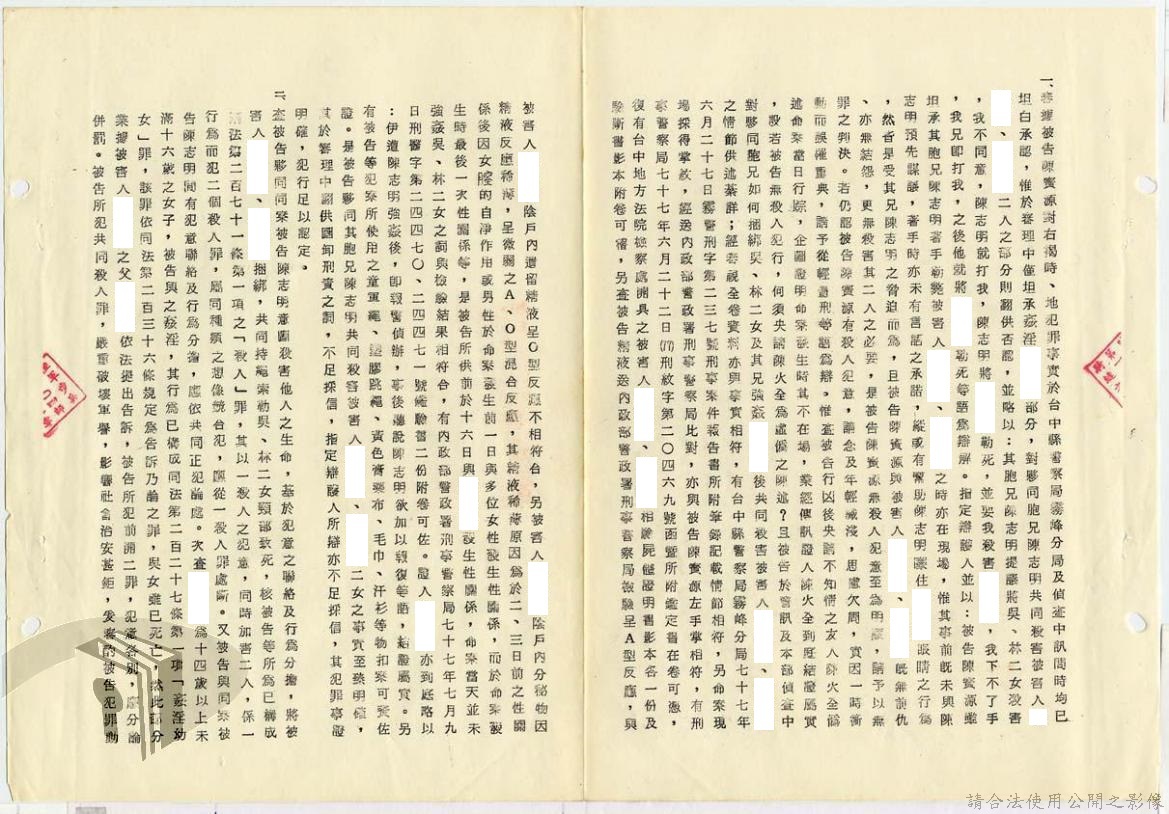 一、查據被告陳賓源對右揭時、地犯罪事實於台中縣警察局霧峰分局及偵查中訊問時均已
坦白承認，惟於審理中僅坦承姦淫 部分，對夥同胞兄陳志明共同殺害被害人
、 二人之部分則翻供否認，並略以：其胞兄陳志明提議將吳、林二女殺害
，我不同意，陳志明就打我，陳志明將 勒死，並要我殺害 ，我下不了手
，我兄即打我，之後他就將 勒死等語為辯解。指定辯護人並以：被告陳賓源雖
坦承其胞兄陳志明著手勒斃被害人 、 之時亦在現場，惟其事前既未與陳
志明預先謀議，著手時亦未有言語之承諾，縱或有幫助陳志明矇住 眼睛之行為
，然皆是受其兄陳志明之脅迫而為，且被告陳賓源與被害人 、 既無前仇
、亦無結怨，更無殺害其二人之必要，是被告陳賓源無殺人犯意至為明顯，請予以無
罪之判決。若仍認被告陳賓源有殺人犯意，請念及年輕識淺，思慮欠周，實因一時衝
動而誤罹重典，請予從輕量刑等語為辯。惟查被告行凶後央請不知情之友人陳火全偽
述命案當日行踪，企圖證明命案發生時其不在場，業經訊證人陳火全到庭結證屬實
，設若被告無殺人犯行，何須央請陳火全為虛偽之陳述？且被告於警訊及本部偵查中
對夥同胞兄如何捆綁吳、林二女及其兄強姦 後共同殺害被害人 、
之情節供述綦詳；經卷視全卷資料亦與事實相符，有台中縣警察局霧峰分局七十七年
六月二十七日霧警刑字第二三七號刑事案件報告書所附筆錄記載情節相符，另命案現
場採得掌紋，經送內政部警政署刑事警察局比對，亦與被告陳賓源左手掌相符，有刑
事警察局七十七年六月二十二日(77)刑紋字第二〇四六九號函暨所附鑑定書在卷可憑，
復有台中地方法院檢察處開具之被害人 、 相驗屍體證明書影本各一份及
驗斷書影本附卷可稽，另查被告精液送內政部警政署刑事警察局檢驗呈A型反應，與
被害人 陰戶內遺留精液呈O型反應不相符合，另被害人 陰戶內分秘物因
精液反應稀薄，呈微弱之A、O型混合反應，其精液稀薄原因為於二、三日前之性關
係後因女陰的自淨作用或男性於命案發生前一日與多位女性發生性關係，而於命案發
生時最後一次性關係等，是被告所供前於十六日與 發生性關係，命案當天並未
強姦吳、林二女之詞與檢驗結果相符合，有內政部警政署刑事警察局七十七年七月九
日刑醫字第二四四七〇、二四四七一號檢驗書二份附卷可佐。證人 亦到庭略以
：伊遭陳志明強姦後，即報警偵辦，事後聽說陳志明欲加以報復等語，結證屬實。另
有被告等犯案所使用之童軍繩、塑膠跳繩、黃色膏藥布、毛巾、汗衫等物扣案可資佐
證。是被告夥同其胞兄陳志明共同殺害被害人 、 二女之事實至臻明確，
其於審理中翻供圖卸刑責之詞，不足採信，指定辯護人所辯亦不足採信，其犯罪事證
明確，犯行足以認定。
二、查被告夥同同案被告陳志明意圖殺害他人之生命，基於犯意之聯絡及行為分擔，將被
害人 、 捆綁，共同持繩索勒吳、林二女頸部致死，核被告等所為已構成
刑法第二百七十一條第一項之「殺人」罪，其以一殺人之犯意，同時加害二人，係一
行為而犯二個殺人罪，屬同種類之想像競合犯，應從一殺人罪處斷。又被告與同案被
告陳志明間有犯意聯絡及行為分擔，應依共同正犯論處。次查 為十四歲以上未
滿十六歲之女子，被告與之姦淫，其行為已構成同法第二百二十七條第一項「姦淫幼
女」罪，該罪依同法第二百三十六條規定為告訴乃論之罪，與女雖已死亡，然此部分
業據被害人 之父 依法提出告訴，被告所犯前開二罪，犯意各別，應分論
併罰。被告所犯共同殺人罪，嚴重破壞軍譽，影響社會治安甚鉅，爰審酌被告犯罪動
請合法使用公開之影像